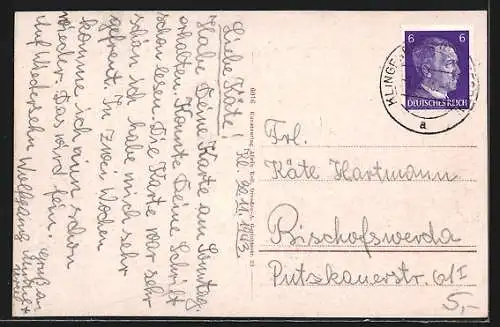 Kl. 22.11.1943
Liebe Käte!
Habe Deine Karte am Sonntag
erhalten. Konnte Deine Schrift
schön lesen. Die Karte war sehr
schön ich habe mich sehr
gefreut. In zwei Wochen
komme ich nun schon
wieder. Das wird fein.
Auf Wiedersehn Wolfgang
6 6
DEUTSCHES REICH
KLINGE
a
Frl.
Käte Hartmann
Bischofswerda
Putzkauerstr. 61 I
5,-